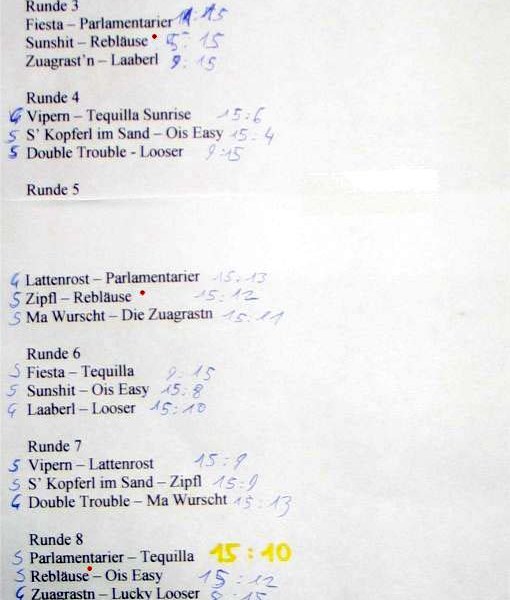 Runde 3
Fiesta – Parlamentarier 11:15
Sunshit – Rebläuse 5:15
Zuagrast'n – Laaberl 9:15
Runde 4
G Vipern – Tequilla Sunrise 15:6
S S' Kopferl im Sand – Ois Easy 15:4
S Double Trouble - Looser 9:15
Runde 5
G Lattenrost – Parlamentarier 15:13
S Zipfl – Rebläuse 15:12
S Ma Wurscht – Die Zuagrastn 15:11
Runde 6
S Fiesta – Tequilla 9:15
S Sunshit – Ois Easy 15:8
G Laaberl – Looser 15:10
Runde 7
S Vipern – Lattenrost 15:9
S S' Kopferl im Sand – Zipfl 15:9
G Double Trouble – Ma Wurscht 15:13
Runde 8
S Parlamentarier – Tequilla 15:10
S Rebläuse – Ois Easy 15:12
G Zuagrastn – Lucky Looser